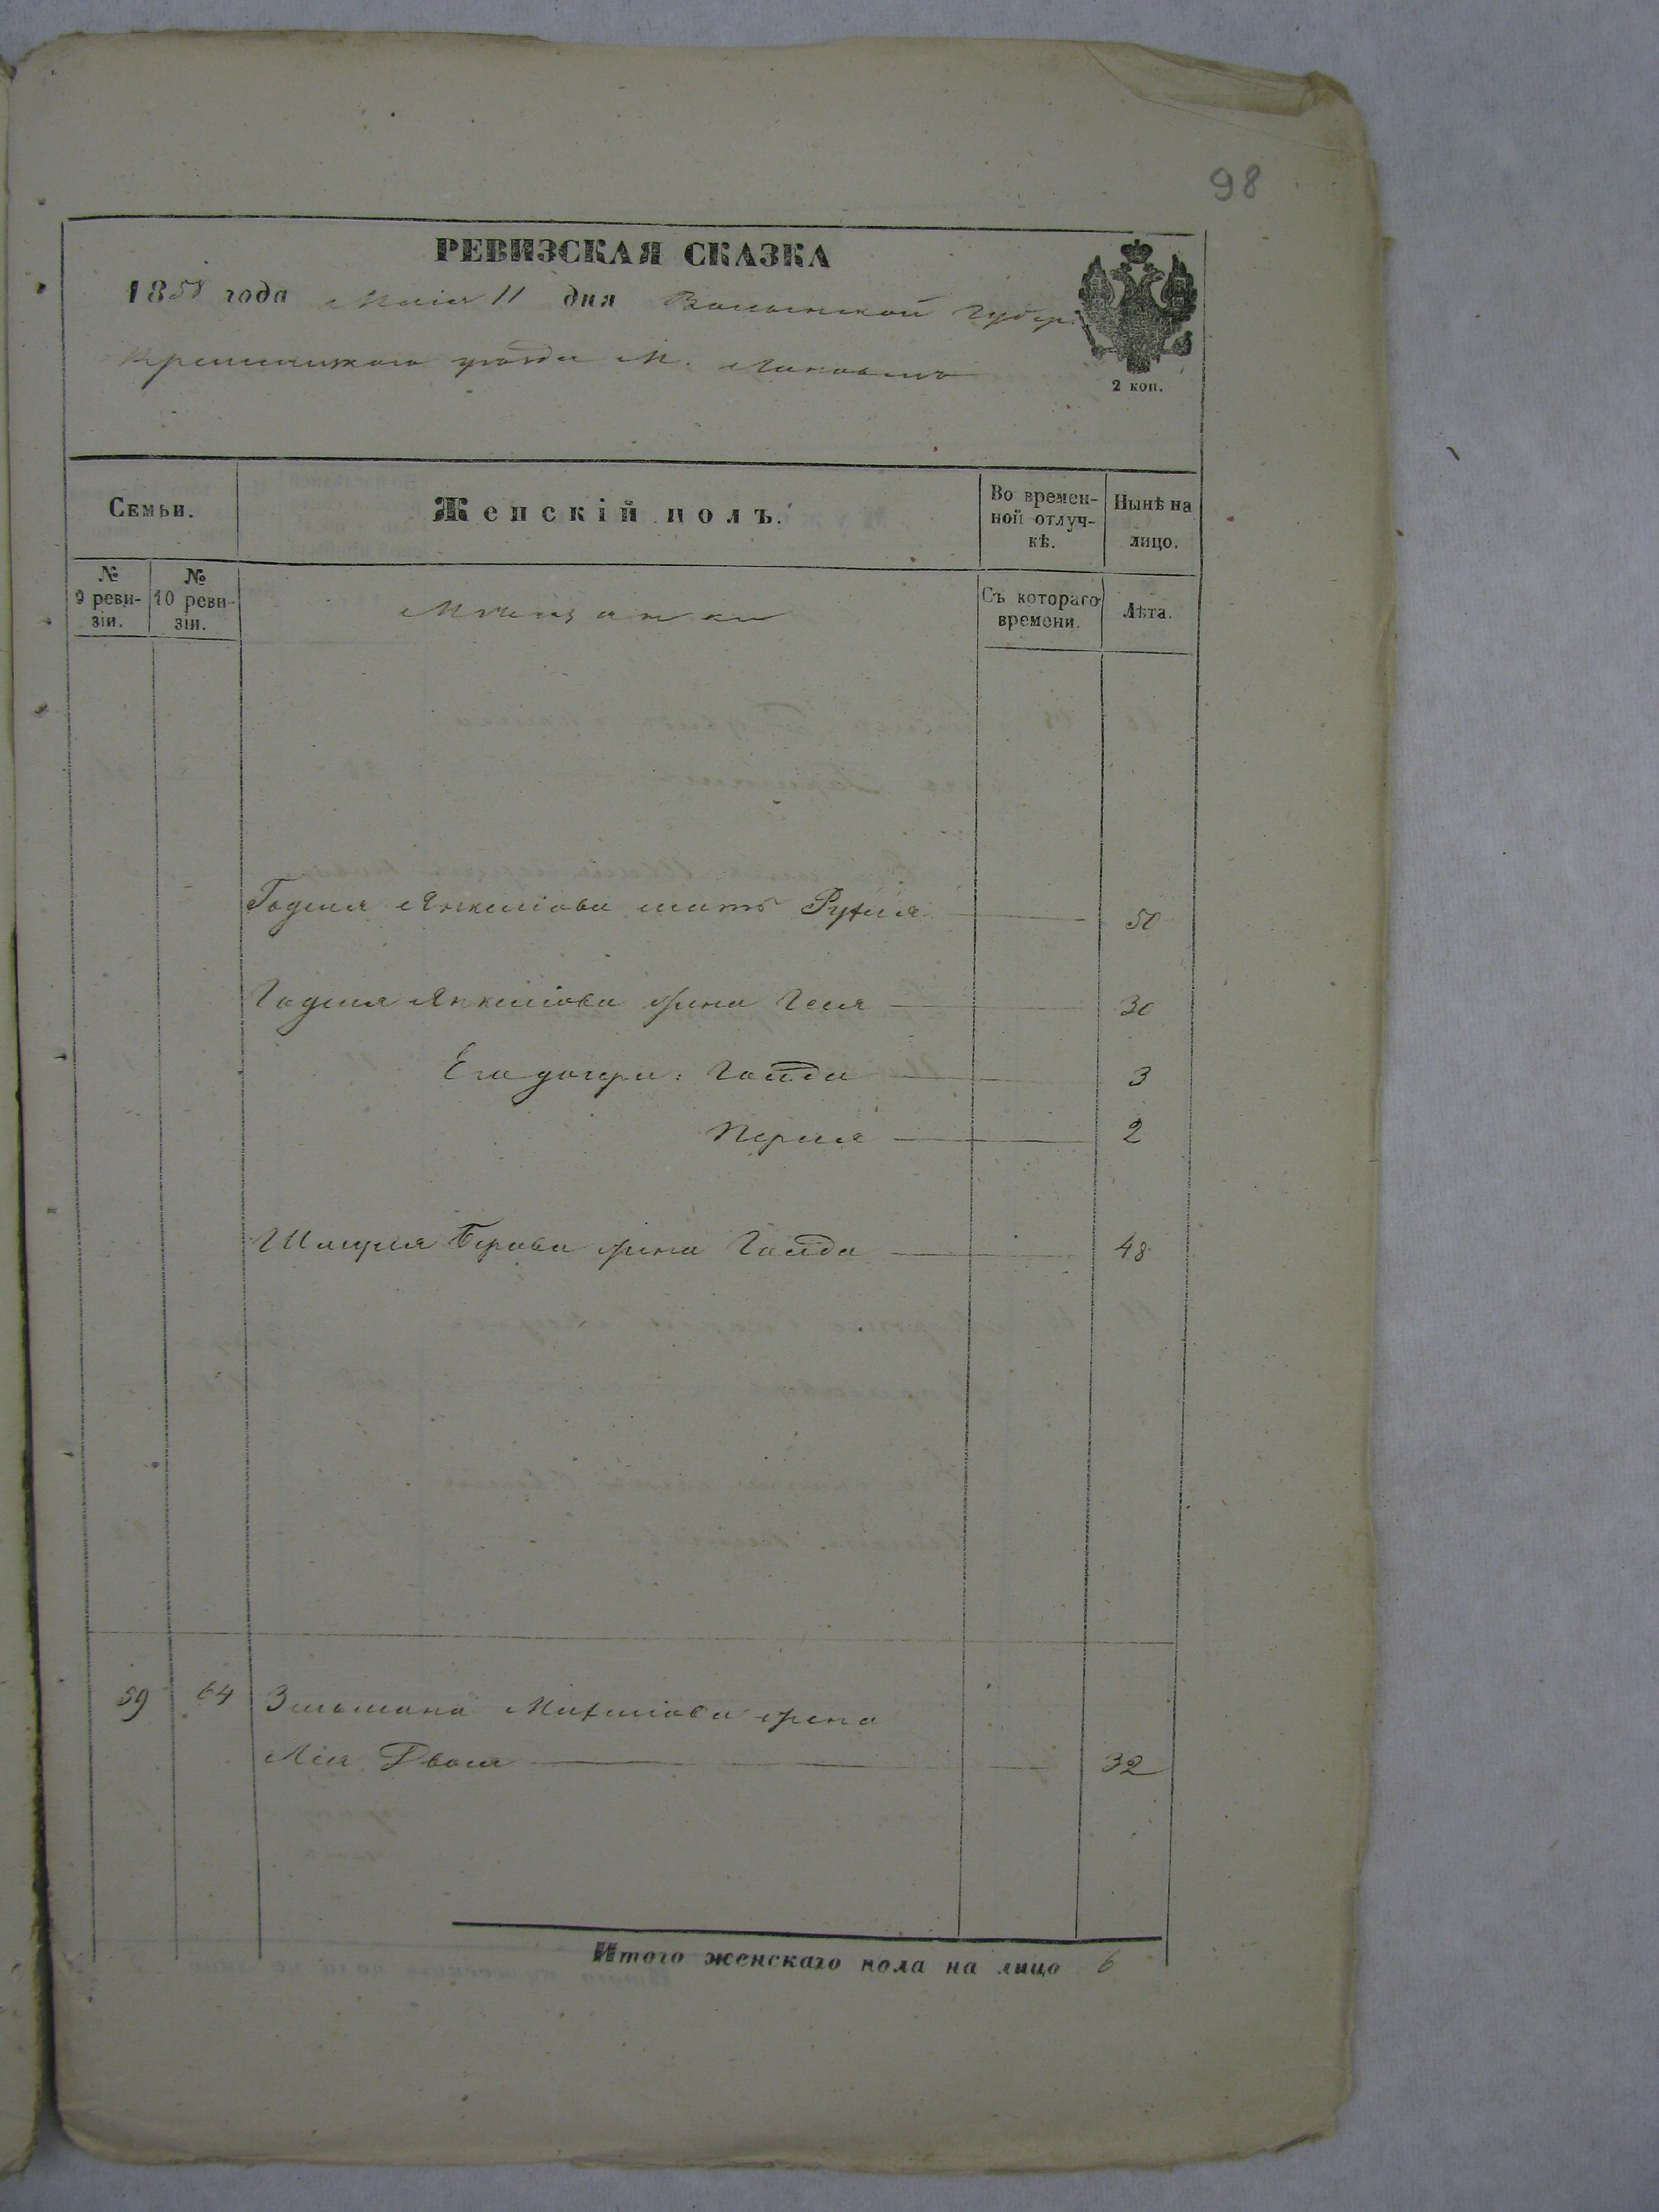 98
РЕВИЗСКАЯ СКАЗКА
1858 года Маія 11 дня Волынской Губер.
Кременецкого уѣзда М. Ляховецъ
2 коп.
Семьи.
Женскій полъ.
Во времен-
ной отлуч-
кѣ.
Нынѣ на
лицо.
№
9 реви-
зіи.
№
10 реви-
зіи.
Мѣщанки
Съ котораго
времени.
Лѣта.
Годеля Янкеліова мать Рухля 50
Годеля Янкеліова жена Геля 30
Его дочери: Гойда 3
Перля 2
Шмуля Берова жена Гойда 48
59 64 Зельмана Михеліова жена
Лія Дволя 32
Итого женскаго пола на лицо 6